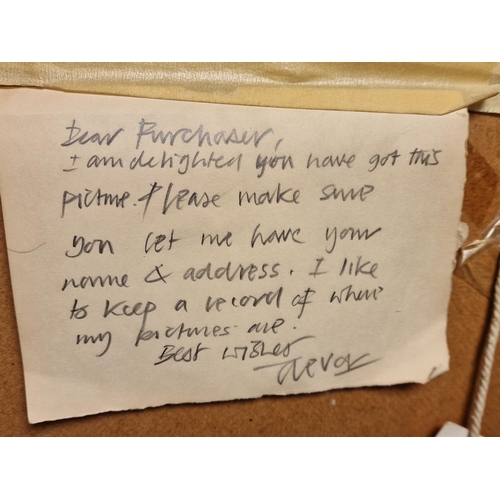 Dear Purchaser,
I am delighted you have got this
picture. Please make sure
you let me have your
name & address. I like
to keep a record of where
my pictures are.
Best wishes
Trevor